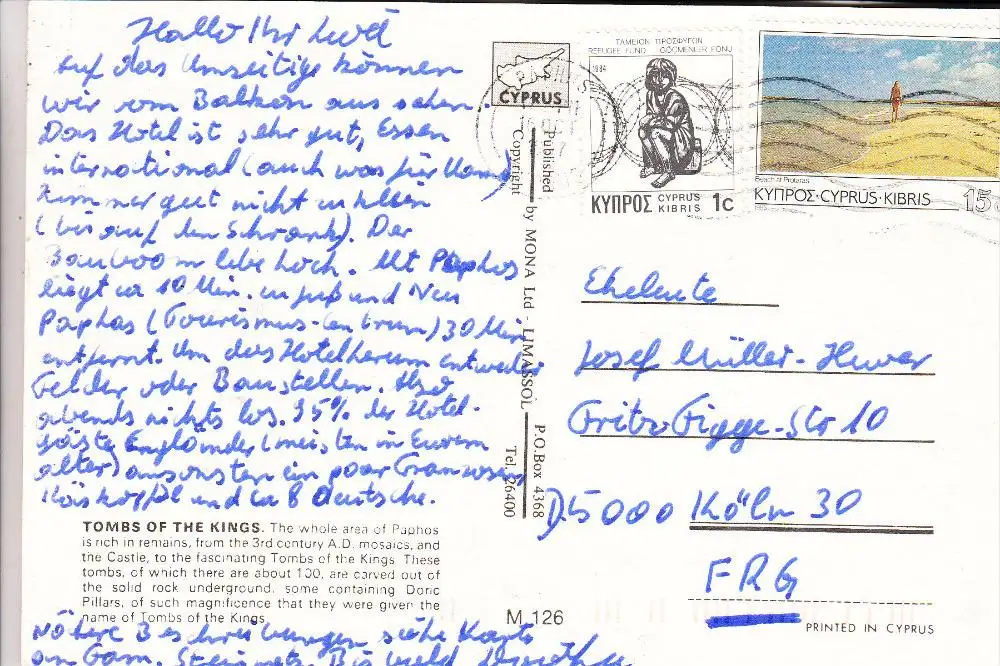 Hallo Ihr
Auf das Umseitige können
wir vom Balkon aus sehen.
Das Hotel ist sehr gut, Essen
international (auch was für
Zimmer gut nicht zu
(bis auf den Schrank). Der
Bauboom lebe hoch. Alt Paphos
liegt ca 10 Min. zu Fuß und Neu
Paphos (Tourismus-Centrum) 30 Min
entfernt. Um das Hotel herum entweder
Felder oder Baustellen. Also
abends nichts los. 95% der Hotel-
gäste Engländer (meisten in Eurem
alter) ansonsten ein paar Franzosen
und ca 8 Deutsche.
TOMBS OF THE KINGS. The whole area of Paphos
is rich in remains, from the 3rd century A.D. mosaics, and
the Castle, to the fascinating Tombs of the Kings. These
tombs, of which there are about 100, are carved out of
the solid rock underground, some containing Doric
Pillars, of such magnificence that they were given the
name of Tombs of the Kings.
Nähere Beschreibungen siehe Karte
an Fam. Bis bald
CYPRUS
Published by MONA Ltd - LIMASSOL P.O.Box 4368
Copyright Tel. 26400
ΤΑΜΕΙΟΝ ΠΡΟΣΦΥΓΩΝ
REFUGEE FUND GÖÇMENLER FONU
1984
ΚΥΠΡΟΣ CYPRUS KIBRIS 1c
Beach at Protaras
ΚΥΠΡΟΣ·CYPRUS·KIBRIS 15
Eheleute
Josef Müller-
Fritz-Figge-Str 10
D 5000 Köln 30
FRG
M.126
PRINTED IN CYPRUS